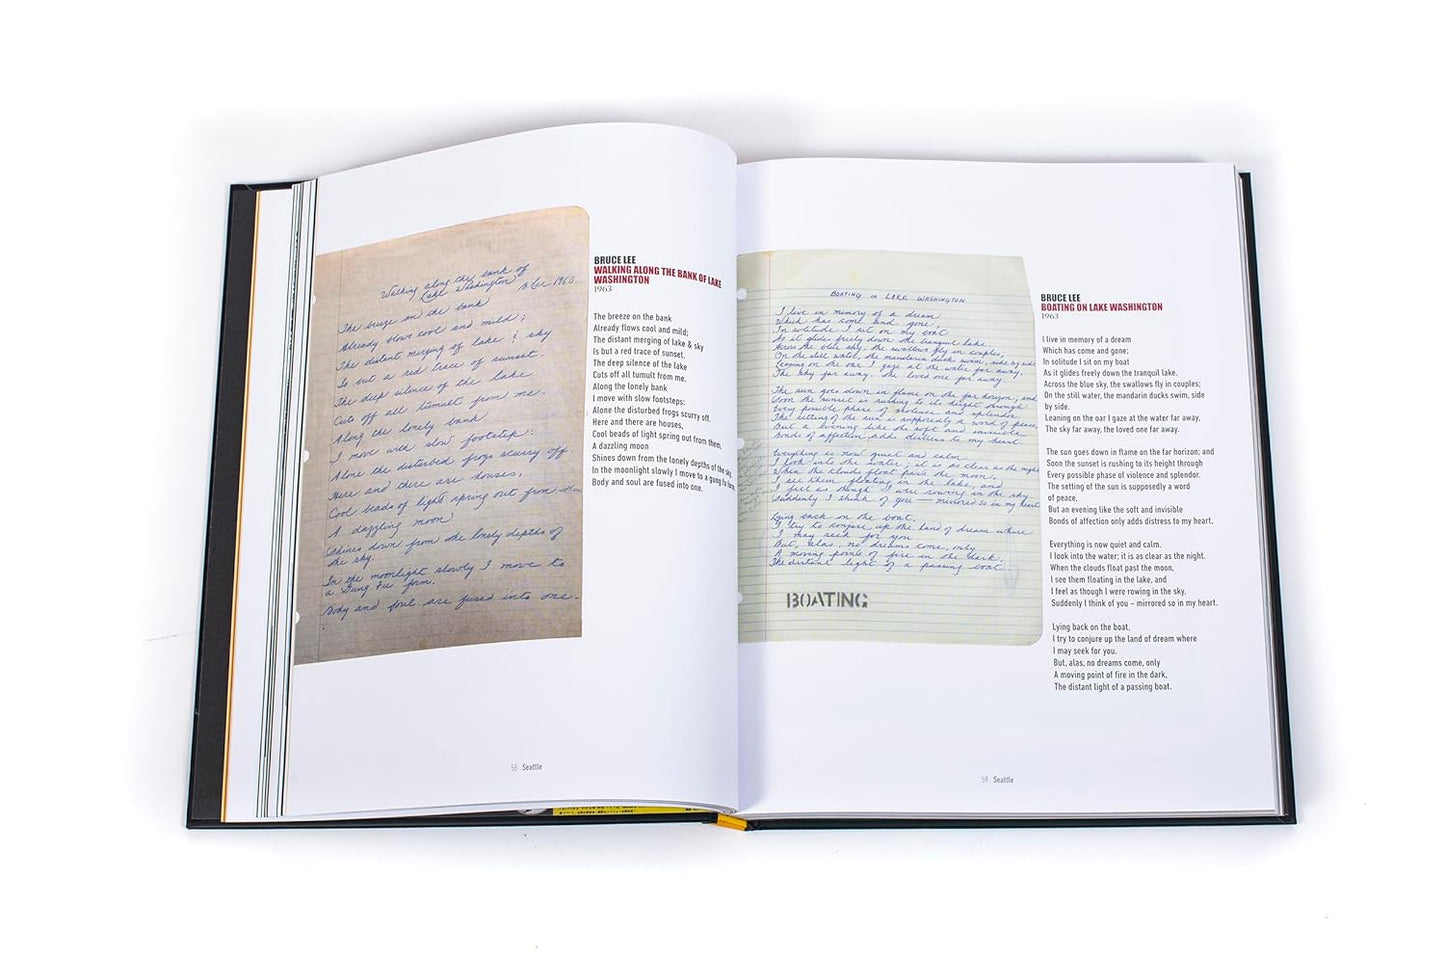 Walking along the bank of
Lake Washington
B Lee 1963
The breeze on the bank
Already blows cool and mild;
The distant merging of lake & sky
Is but a red trace of sunset.
The deep silence of the lake
Cuts off all tumult from me.
Along the lonely bank
I move with slow footstep:
Alone the disturbed frogs scurry off
Here and there are houses,
Cool beads of light spring out from them
A dazzling moon
Shines down from the lonely depths of
the sky.
In the moonlight slowly I move to
a Gung Fu form.
Body and soul are fused into one.
BRUCE LEE
WALKING ALONG THE BANK OF LAKE
WASHINGTON
1963
The breeze on the bank
Already flows cool and mild;
The distant merging of lake & sky
Is but a red trace of sunset.
The deep silence of the lake
Cuts off all tumult from me.
Along the lonely bank
I move with slow footsteps:
Alone the disturbed frogs scurry off.
Here and there are houses,
Cool beads of light spring out from them.
A dazzling moon
Shines down from the lonely depths of the sky.
In the moonlight slowly I move to a gung fu form.
Body and soul are fused into one.
58 Seattle
BOATING ON LAKE WASHINGTON
I live in memory of a dream
Which has come and gone;
In solitude I sit on my boat
As it glides freely down the tranquil lake.
Across the blue sky, the swallows fly in couples;
On the still water, the mandarin ducks swim, side by side.
Leaning on the oar I gaze at the water far away,
The sky far away, the loved one far away.
The sun goes down in flame on the far horizon; and
Soon the sunset is rushing to its height through
Every possible phase of violence and splendor.
The setting of the sun is supposedly a word of peace,
But a evening like the soft and invisible
Bonds of affection adds distress to my heart.
Everything is now quiet and calm.
I look into the water; it is as clear as the night
When the clouds float past the moon,
I see them floating in the lake, and
I feel as though I were rowing in the sky.
Suddenly I think of you — mirrored so in my heart
Lying back on the boat,
I try to conjure up the land of dream where
I may seek for you
But, alas, no dreams come, only
A moving points of fire in the dark,
The distant light of a passing boat
BOATING
BRUCE LEE
BOATING ON LAKE WASHINGTON
1963
I live in memory of a dream
Which has come and gone;
In solitude I sit on my boat
As it glides freely down the tranquil lake.
Across the blue sky, the swallows fly in couples;
On the still water, the mandarin ducks swim, side
by side.
Leaning on the oar I gaze at the water far away,
The sky far away, the loved one far away.
The sun goes down in flame on the far horizon; and
Soon the sunset is rushing to its height through
Every possible phase of violence and splendor.
The setting of the sun is supposedly a word
of peace,
But an evening like the soft and invisible
Bonds of affection only adds distress to my heart.
Everything is now quiet and calm.
I look into the water; it is as clear as the night.
When the clouds float past the moon,
I see them floating in the lake, and
I feel as though I were rowing in the sky.
Suddenly I think of you – mirrored so in my heart.
Lying back on the boat,
I try to conjure up the land of dream where
I may seek for you.
But, alas, no dreams come, only
A moving point of fire in the dark,
The distant light of a passing boat.
59 Seattle